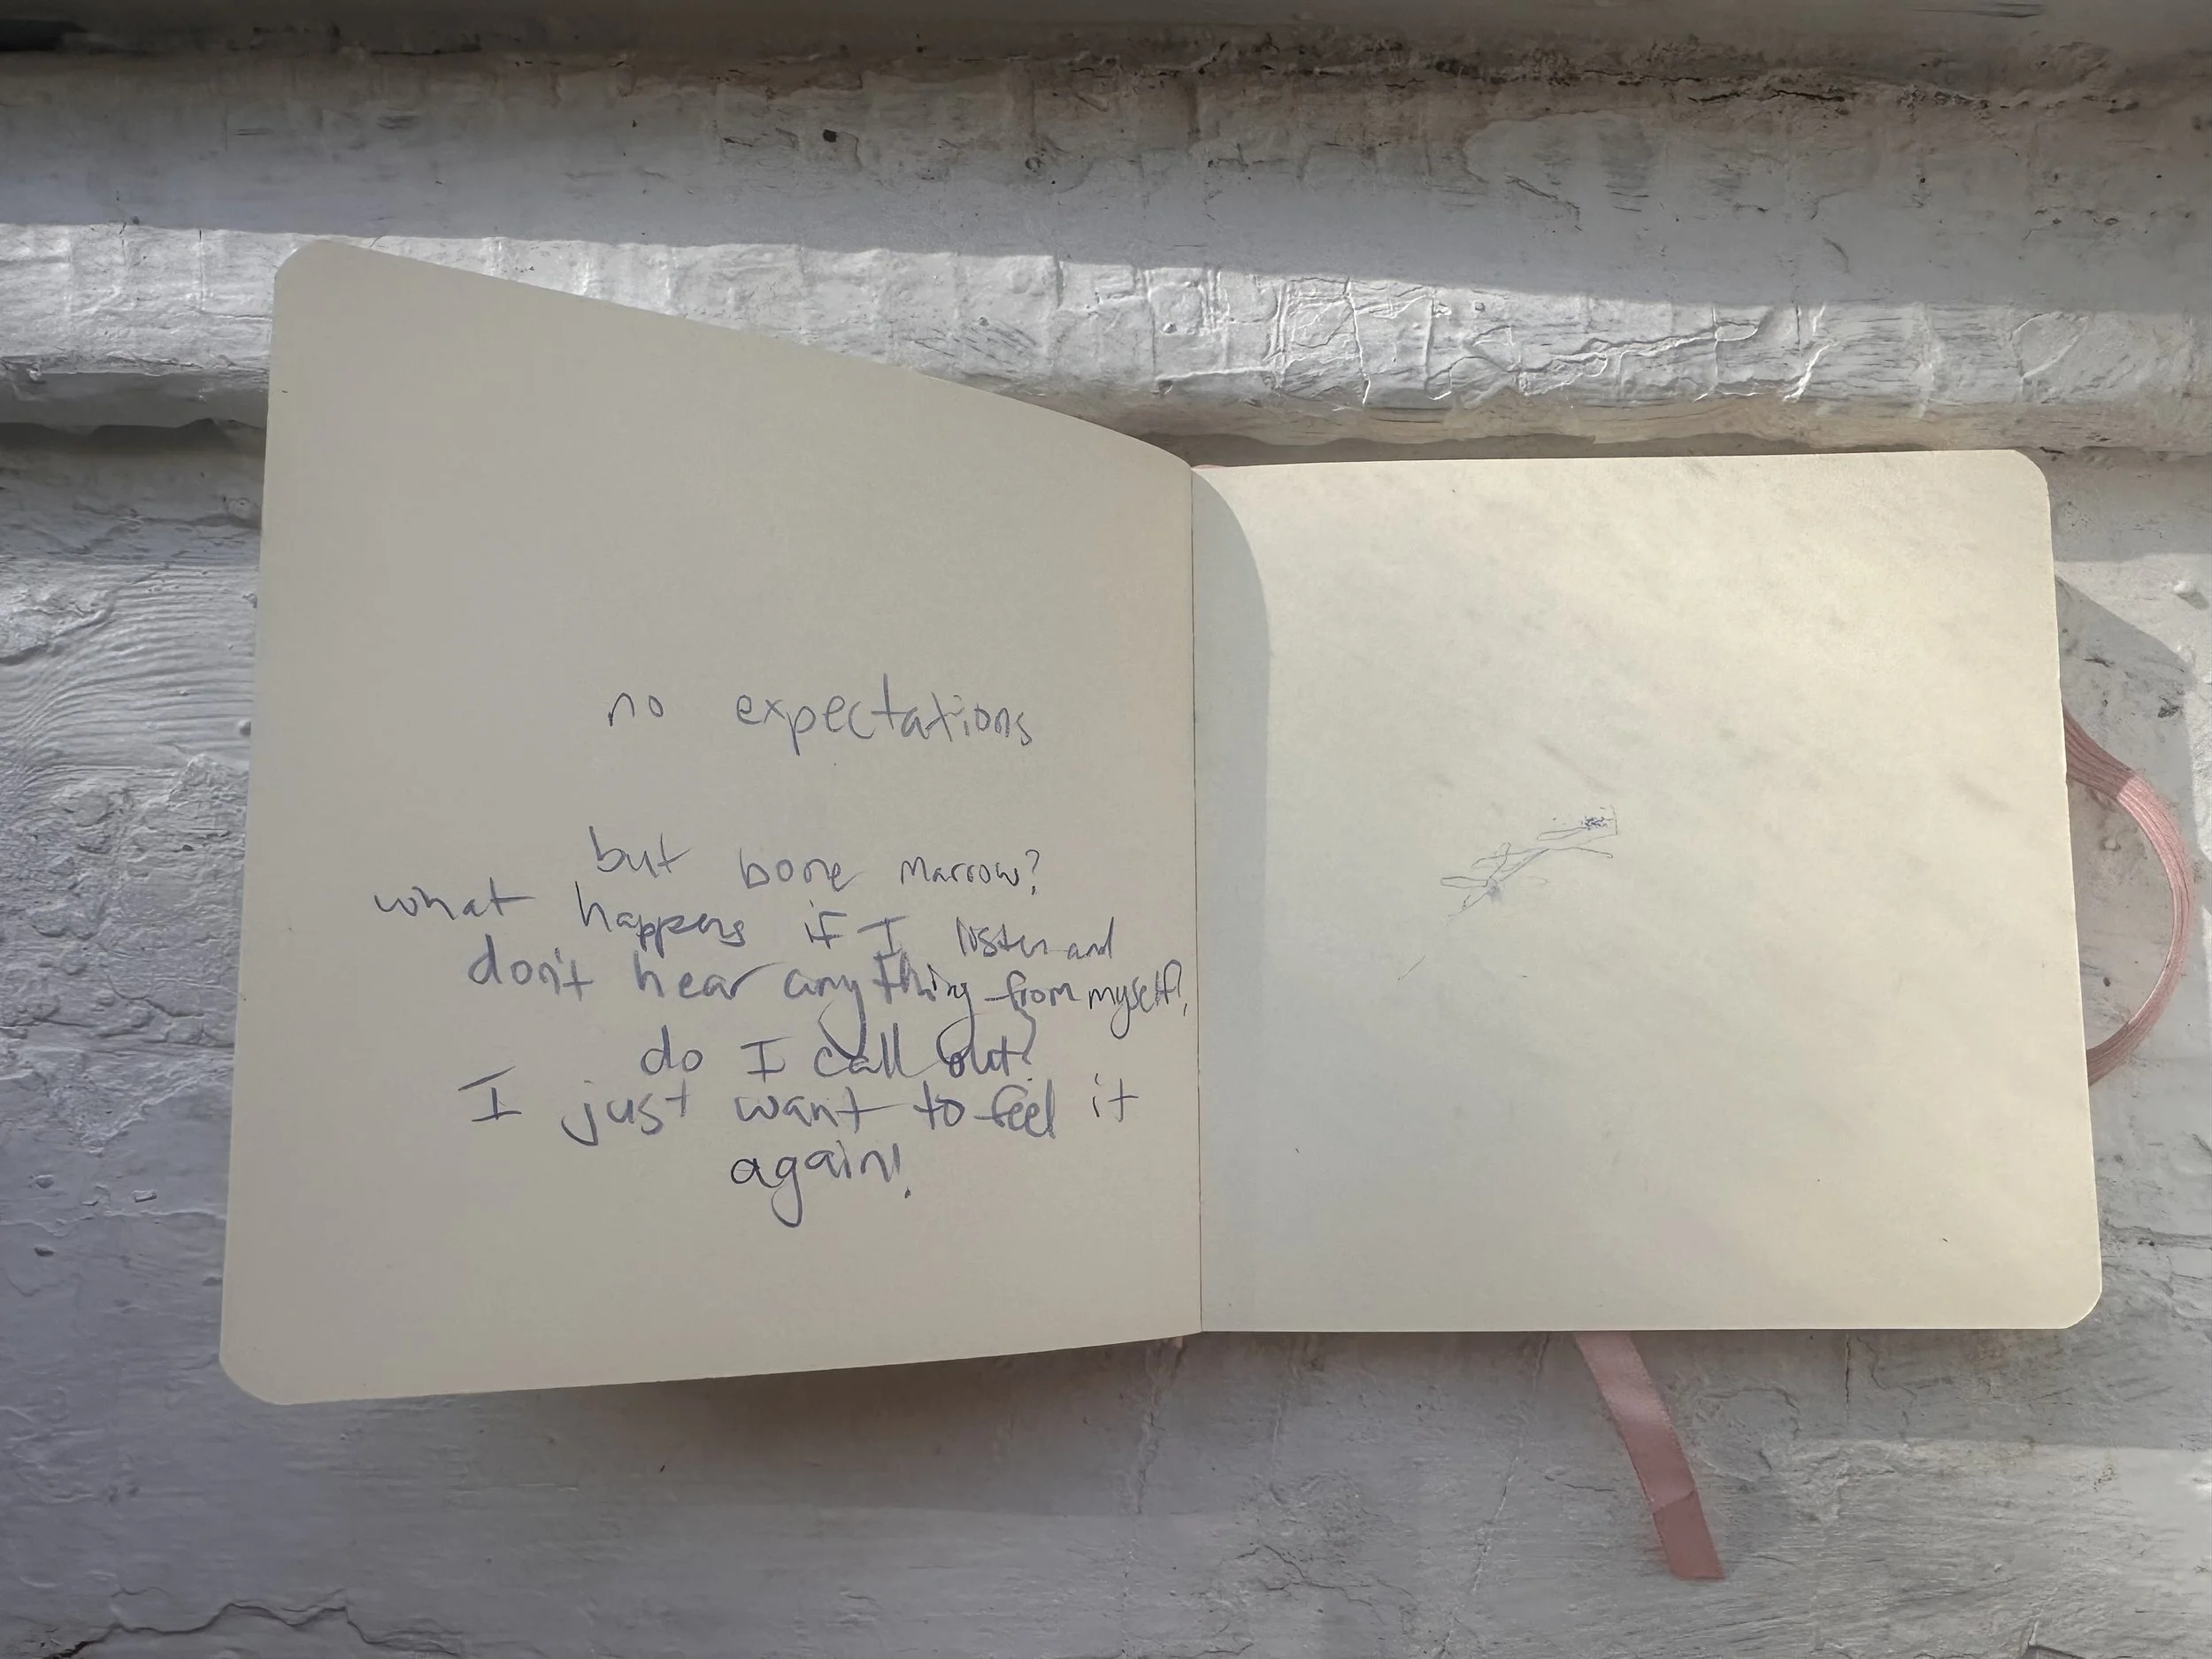 no expectations
but bone marrow?
what happens if I listen and
don't hear anything from myself?
do I call out?
I just want to feel it
again!